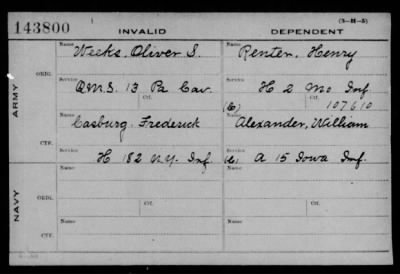 143800 INVALID DEPENDENT (3-H-5)
ARMY
ORIG.
Name Weeks, Oliver S. Name Renter, Henry
Service Q.M.S. 13 Pa Cav. Service H 2 Mo Inf
Ctf. Ctf. 107610
CTF.
Name Casburg, Frederick Name Alexander, William
Service H 182 N.Y. Inf Service A 15 Iowa Inf.
NAVY
ORIG.
Name Ctf. Name Ctf.
Service Service
CTF.
Name Name
Service Service